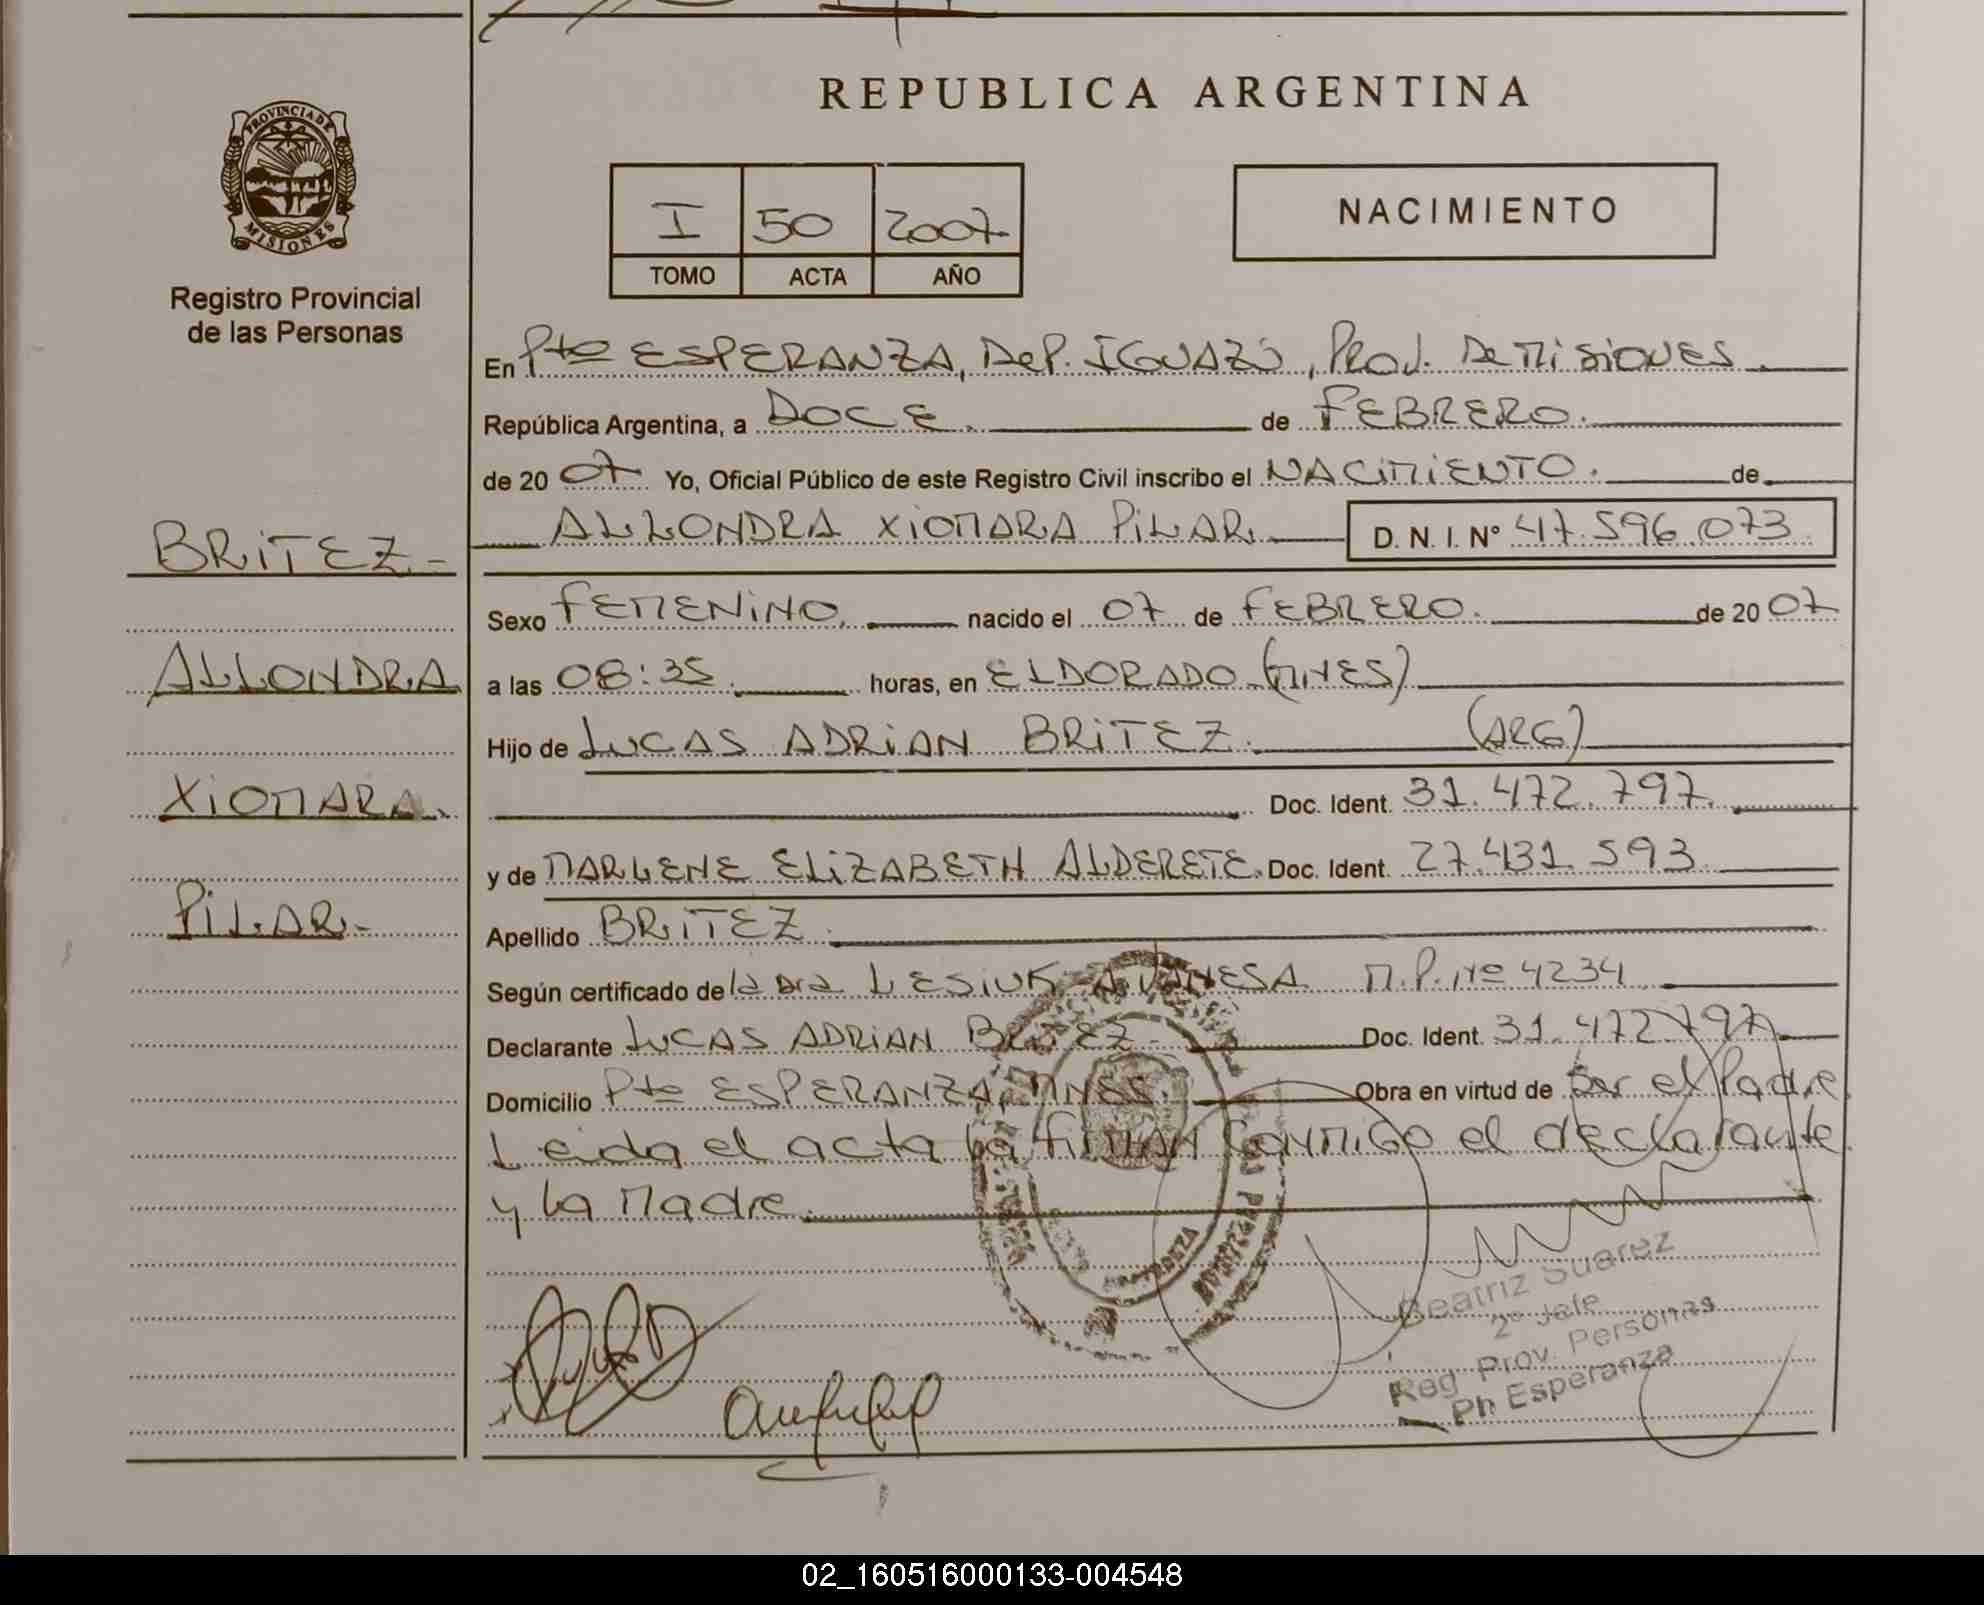 REPUBLICA ARGENTINA
PROVINCIA DE MISIONES
Registro Provincial
de las Personas
I 50 2007
TOMO ACTA AÑO
NACIMIENTO
En Pto ESPERANZA, DeP. IGUAZÚ, Prov. De MISIONES
República Argentina, a DOCE de FEBRERO.
de 2007 Yo, Oficial Público de este Registro Civil inscribo el NACIMIENTO. de
ALLONDRA XIOMARA PILAR D. N. I. N° 47.596.073
BRITEZ-
ALLONDRA
XIOMARA.
PILAR-
Sexo FEMENINO. nacido el 07 de FEBRERO. de 2007
a las 08:35 horas, en ELDORADO (MNES)
Hijo de LUCAS ADRIAN BRITEZ. (ARG)
Doc. Ident. 31.472.797.
y de MARLENE ELIZABETH ALDERETE. Doc. Ident. 27.431.593
Apellido BRITEZ
Según certificado de la Dra LESIUK VANESA M.P. Nº 4234
Declarante LUCAS ADRIAN BRITEZ- Doc. Ident. 31.472.797
Domicilio Pto ESPERANZA, MNES. Obra en virtud de ser el Padre
Leida el acta la firman conmigo el declarante
y la Madre.
Beatriz Suarez
2º Jefe
Reg. Prov. Personas
Pto Esperanza
02_160516000133-004548